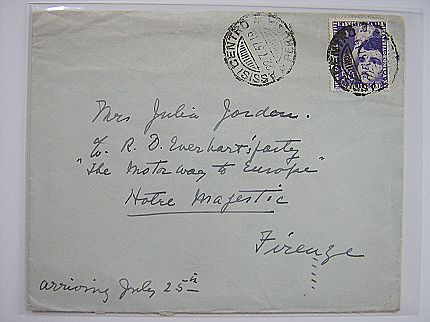 ASSISI CENTRO
ASSISI CENTRO
Mrs Julia Jorden.
To R. D. Everhart's party
"The Motor way to Europe"
Hotel Majestic
Firenze
arriving July 25th